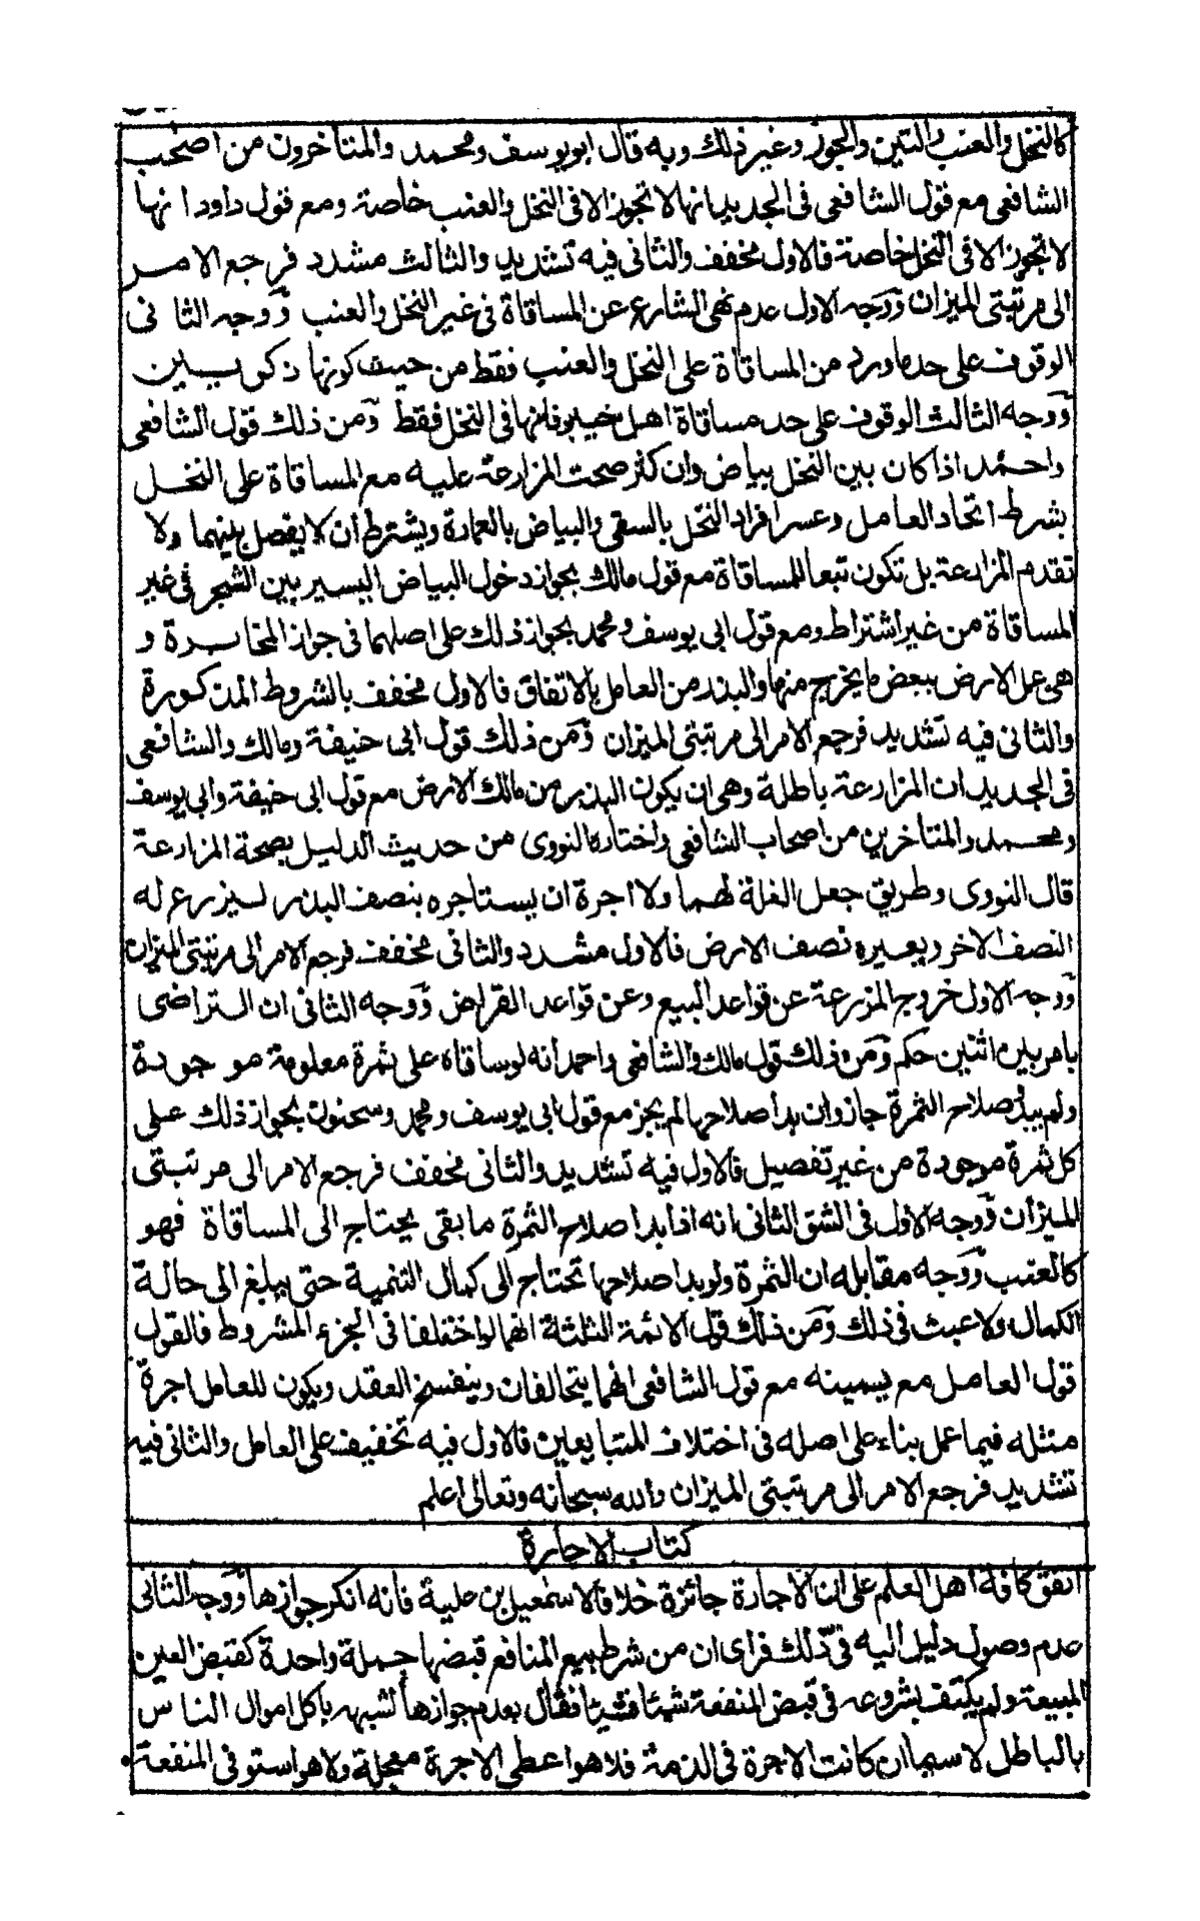 كالنخل والعنب والتين والجوز وغير ذلك وبه قال ابو يوسف ومحمد والمتأخرون من اصحب
الشافعى مع قول الشافعى فى الجديد انها لا تجوز الا فى النخل والعنب خاصة ومع قول داود انها
لا تجوز الا فى النخل خاصة فالاول مخفف والثانى فيه تشديد والثالث مشدد فرجع الامر
الى مرتبتى الميزان ووجه الاول عدم نهى الشارع عن المساقاة فى غير النخل والعنب ووجه الثانى
الوقوف على حد ما ورد من المساقاة على النخل والعنب فقط من حيث كونها زكويين
ووجه الثالث الوقوف على حد مساقاة اهل خيبر فانها فى النخل فقط ومن ذلك قول الشافعى
واحمد اذا كان بين النخل بياض وان كثر صحت المزارعة عليه مع المساقاة على النخل
بشرط اتحاد العامل وعسر افراد النخل بالسقى والبياض بالعمارة ويشترط ان لا يفصل بينهما ولا
تقدم المزارعة بل تكون تبعا للمساقاة مع قول مالك بجواز دخول البياض اليسير بين الشجر فى غير
المساقاة من غير اشتراط ومع قول ابى يوسف ومحمد بجواز ذلك على اصلهما فى جواز المخابرة و
هى عل الارض ببعض ما يخرج منها والبذر من العامل بالاتفاق فالاول مخفف بالشروط المذكورة
والثانى فيه تشديد فرجع الامر الى مرتبتى الميزان ومن ذلك قول ابى حنيفة ومالك والشافعى
فى الجديد ان المزارعة باطلة وهى ان يكون البذر من مالك الارض مع قول ابى حنيفة وابى يوسف
ومحمد والمتاخرين من اصحاب الشافعى واختاره النووى من حديث الدليل بصحة المزارعة
قال النووى وطريق جعل الغلة لهما ولا اجرة ان يستاجره بنصف البذر ليزرع له
النصف الاخر ويعيره نصف الارض فالاول مشدد والثانى مخفف فرجع الامر الى مرتبتى الميزان
ووجه الاول خروج المزرعة عن قواعد البيع وعن قواعد القراض ووجه الثانى ان التراضى
بامر بين اثنين حكم ومن ذلك قول مالك والشافعى واحمد أنه لو ساقاه على ثمرة معلومة موجودة
ولم يبد صلاح الثمرة جاز وان بدا صلاحها لم يجز مع قول ابى يوسف ومحمد وسحنون بجواز ذلك على
كل ثمرة موجودة من غير تفصيل فالاول فيه تشديد والثانى مخفف فرجع الامر الى مرتبتى
الميزان ووجه الاول فى الشق الثانى انه اذا بدا صلاح الثمرة ما بقى يحتاج الى المساقاة فهو
كالعنب ووجه مقابله ان الثمرة ولو بدا صلاحها تحتاج الى كمال التنمية حتى يبلغ الى حالة
الكمال ولا عبث فى ذلك ومن ذلك قول الائمة الثلثة انهما لو اختلفا فى الجزء المشروط فالقول
قول العامل مع يمينه مع قول الشافعى انهما يتحالفان وينفسخ العقد ويكون للعامل اجرة
مثله فيما عمل بناء على اصله فى اختلاف المتبايعين فالاول فيه تخفيف على العامل والثانى فيه
تشديد فرجع الامر الى مرتبتى الميزان والله سبحانه وتعالى اعلم
كتاب الاجارة
اتفق كافة اهل العلم على ان الاجارة جائزة خلافا لاسمعيل بن علية فانه انكر جوازها ووجه الثانى
عدم وصول دليل اليه فى ذلك فراى ان من شرط بيع المنافع قبضها جملة واحدة كقبض العين
المبيعة ولم يكتف بشروعه فى قبض المنفعة شيئا فشيئا فقال بعدم جوازها لشبهه باكل اموال الناس
بالباطل لا سيما ان كانت الاجرة فى الذمة فلا هو اعطى الاجرة معجلة ولا هو استوفى المنفعة